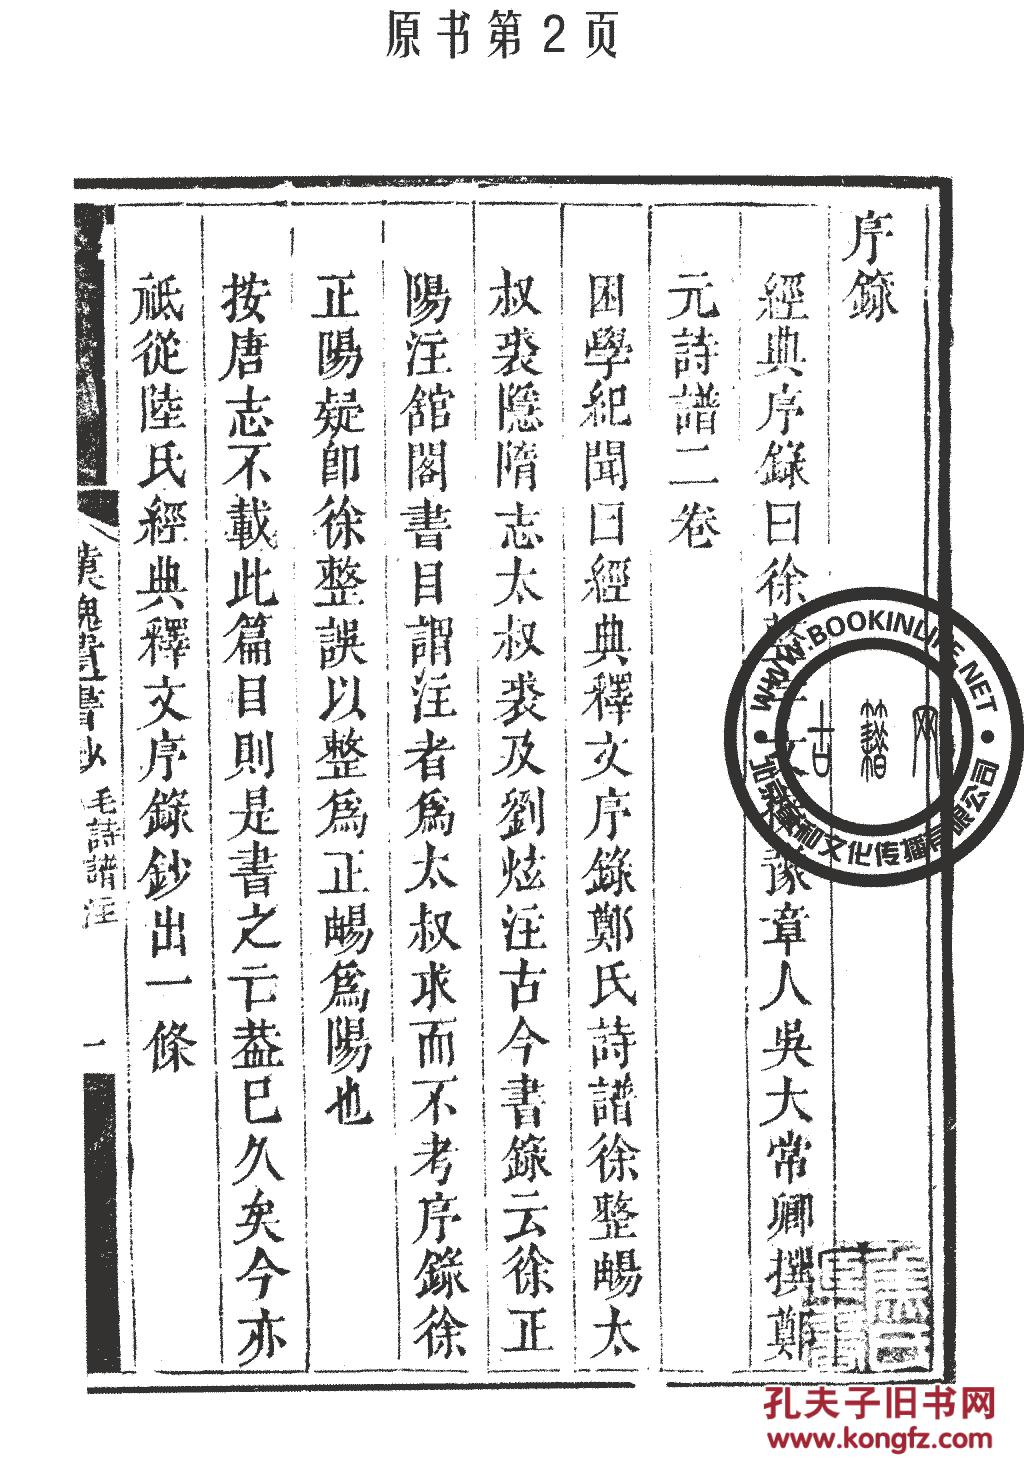 原书第2页
序錄
經典序錄曰徐整字文操豫章人吳大常卿撰鄭
元詩譜二卷
困學紀聞曰經典釋文序錄鄭氏詩譜徐整暢太
叔裘隱隋志太叔裘及劉炫注古今書錄云徐正
陽注館閣書目謂注者爲太叔求而不考序錄徐
正陽疑卽徐整誤以整爲正暢爲陽也
按唐志不載此篇目則是書之亡葢巳久矣今亦
祇從陸氏經典釋文序錄鈔出一條
漢魏遺書鈔
毛詩譜注
一
WWW.BOOKINLIFE.NET
古籍网
文化传播有限公司
孔夫子旧书网
www.kongfz.com